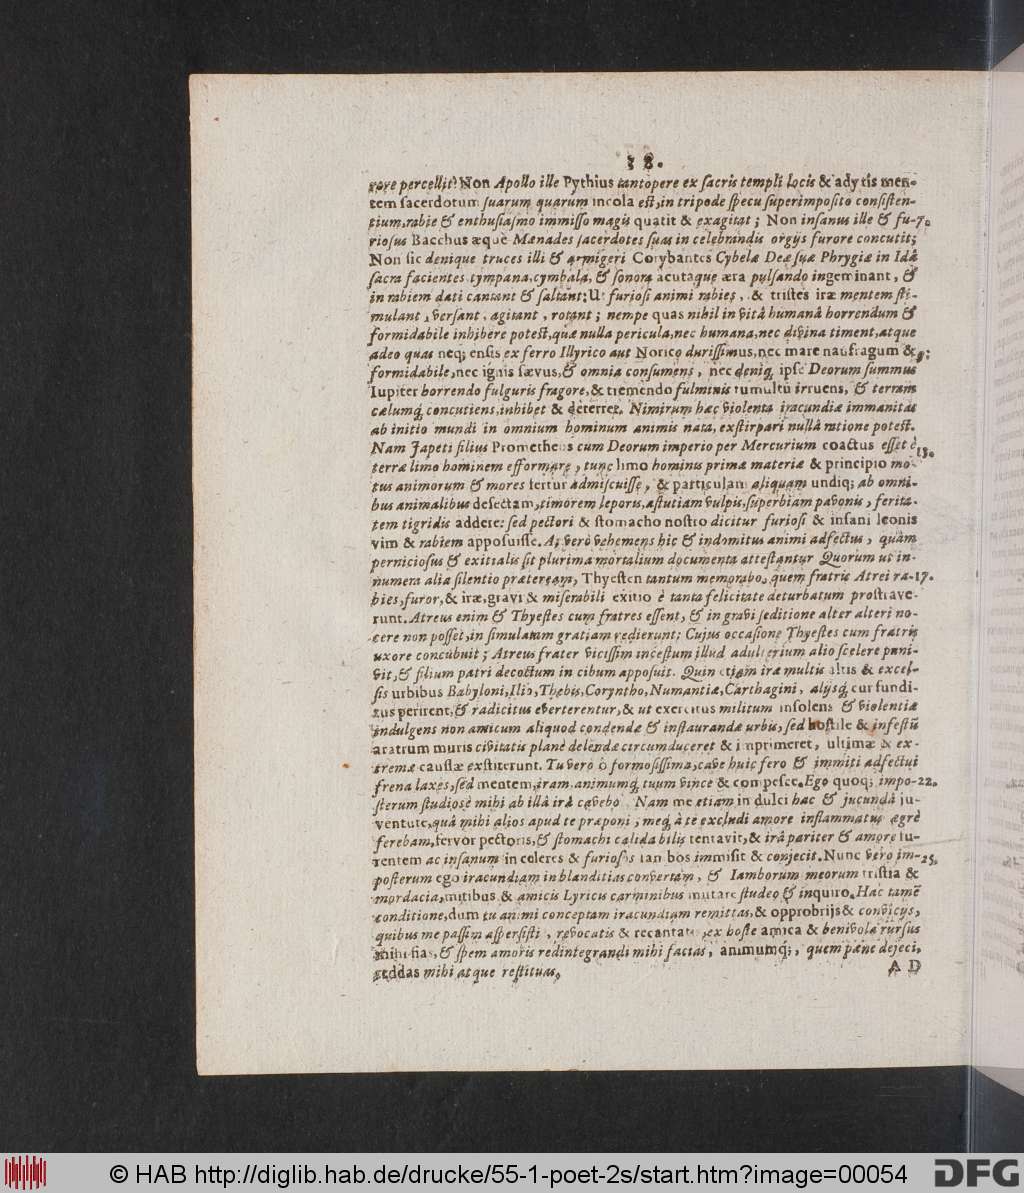 38.
rore percellit! Non Apollo ille Pythius tantopere ex sacris templi locis & adytis men-
tem sacerdotum suarum quarum incola est, in tripode specu superimposito consisten-
tium, rabie & enthusiasmo immisso magis quatit & exagitat; Non insanus ille & fu- 7.
riosus Bacchus æquè Mænades sacerdotes suas in celebrandis orgijs furore concutit;
Non sic denique truces illi & armigeri Corybantes Cybelæ Deæ suæ Phrygiæ in Idâ
sacra facientes tympana, cymbala, & sonora acutaque æra pulsando ingeminant, &
in rabiem dati cantant & saltant: Ut furiosi animi rabies, & tristes iræ mentem sti-
mulant, versant, agitant, rotant; nempe quas nihil in vitâ humanâ horrendum &
formidabile inhibere potest, quæ nulla pericula, nec humana, nec divina timent, atque
adeo quas neq; ensis ex ferro Illyrico aut Norico durissimus, nec mare naufragum & 9;
formidabile, nec ignis sævus, & omnia consumens, nec deniq, ipse Deorum summus
Iupiter horrendo fulguris fragore, & tremendo fulminis tumultu irruens, & terram
cælumq, concutiens, inhibet & deterret. Nimirum hæc violenta iracundiæ immanitas
ab initio mundi in omnium hominum animis nata, exstirpari nullâ ratione potest.
Nam Japeti filius Prometheus cum Deorum imperio per Mercurium coactus esset è 13.
terræ limo hominem efformare, tunc limo hominis primæ materiæ & principio mo-
tus animorum & mores fertur admiscuisse, & particulam aliquam undiq; ab omni-
bus animalibus desectam, timorem leporis, astutiam vulpis, superbiam pavonis, ferita-
tem tigridis addere: sed pectori & stomacho nostro dicitur furiosi & insani leonis
vim & rabiem apposuisse. At verò vehemens hic & indomitus animi adfectus, quàm
perniciosus & exitialis sit plurima mortalium documenta attestantur Quorum ut in-
numera alia silentio præteream, Thyesten tantum memorabo, quem fratris Atrei ra- 17.
bies, furor, & iræ, gravi & miserabili exitio è tanta felicitate deturbatum prostrave-
runt. Atreus enim & Thyestes cum fratres essent, & in gravi seditione alter alteri no-
cere non posset, in simulatam gratiam redierunt; Cujus occasione Thyestes cum fratris
uxore concubuit; Atreus frater vicissim incestum illud adulterium alio scelere puni-
vit, & filium patri decoctum in cibum apposuit. Quin etiam iræ multis altis & excel-
sis urbibus Babyloni, Iliò, Thebis, Coryntho, Numantiæ, Carthagini, alijsq, cur fundi-
tus perirent, & radicitus everterentur, & ut exercitus militum insolens & violentiæ
indulgens non amicum aliquod condendæ & instaurandæ urbis, sed hostile & infestū
aratrum muris civitatis planè delendæ circumduceret & imprimeret, ultimæ & ex-
tremæ caussæ exstiterunt. Tu verò ô formosissima, cave huic fero & immiti adfectui
frena laxes, sed mentem, iram, animumq, tuum vince & compesce. Ego quoq; impo- 22.
sterum studiosè mihi ab illâ irâ cavebo. Nam me etiam in dulci hac & jucundâ ju-
ventute, quâ mihi alios apud te præponi, meq, à te excludi amore inflammatus ægrè
ferebam, fervor pectoris, & stomachi calida bilis tentavit, & irâ pariter & amore fu-
rentem ac insanum in celeres & furiosos iambos immisit & conjecit. Nunc verò im- 25.
posterum ego iracundiam in blanditias convertam, & Iamborum meorum tristia &
mordacia, mitibus & amicis Lyricis carminibus mutare studeo & inquiro. Hac tamē
conditione, dum tu animi conceptam iracundiam remittas, & opprobrijs & convicijs,
quibus me passim aspersisti, revocatis & recantatis, ex hoste amica & benivola rursus
mihi fias, & spem amoris redintegrandi mihi facias, animumq;, quem pæne dejeci,
reddas mihi atque restituas.
A D
© HAB http://diglib.hab.de/drucke/55-1-poet-2s/start.htm?image=00054
DFG